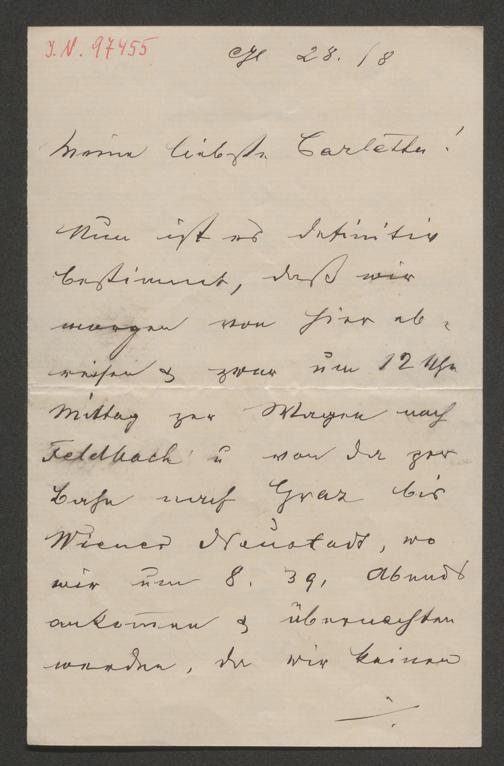 J.N. 97455
Gl 28./8
Meine liebste Carletta!
Nun ist es definitiv
bestimmt, daß wir
morgen von hier ab-
reisen & zwar um 12 Uhr
Mittag per Wagen nach
Feldbach u von da per
Bahn nach Graz bis
Wiener Neustadt, wo
wir um 8. 39. Abends
ankom̅en & übernachten
werden, da wir keinen
./.